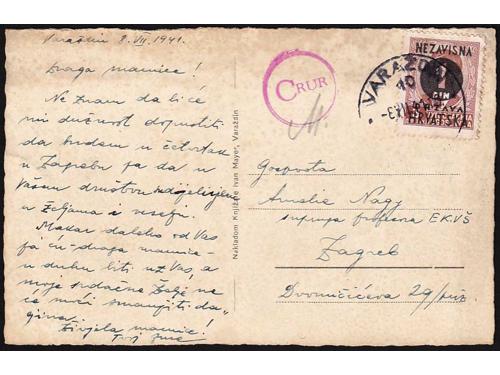 Varaždin 8. VII. 1941.
Draga mamice!
Ne znam da li će
mi dužnost dopustiti
da budem u četvrtak
u Zagrebu pa da u
Vašem društvu
u željama i veselju.
Makar daleko od Vas
ja ću - draga mamice -
u duhu biti uz Vas, a
moje srdačne želje ne
će moći smanjiti da-
ljina.
Živjela mamice!
Tvoj
Nakladom Knjižare Ivan Mayer, Varaždin
CRUR
VARAŽDIN
NEZAVISNA
HRVATSKA
Gospođa
Amalie Nagy
supruga profesora EK.VŠ
Zagreb
Dvorničićeva 29/priz.